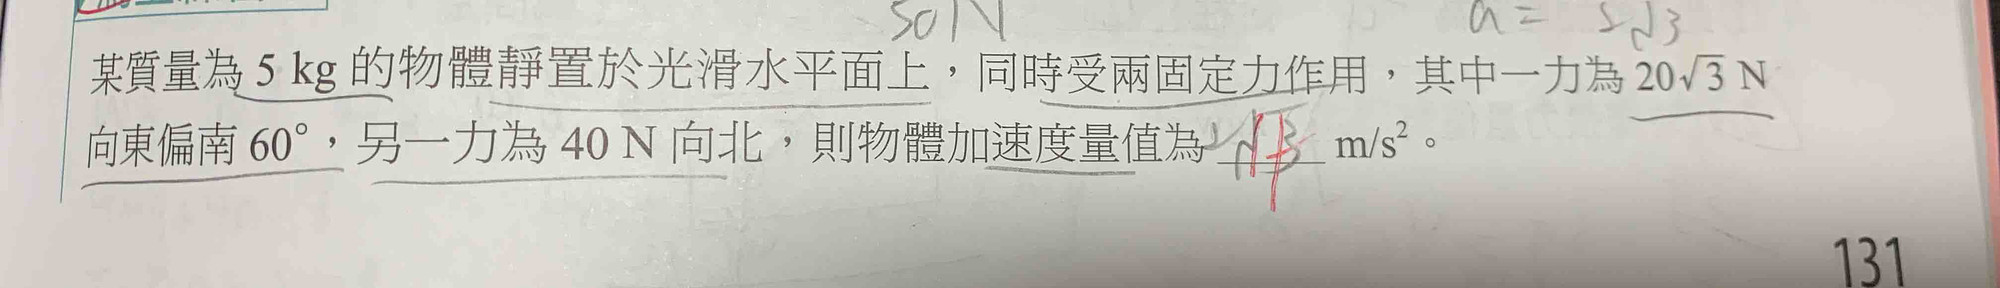 50N
a = 5√3
某質量為 5 kg 的物體靜置於光滑水平面上，同時受兩固定力作用，其中一力為 20√3 N
向東偏南 60°，另一力為 40 N 向北，則物體加速度量值為 4 m/s²。
131